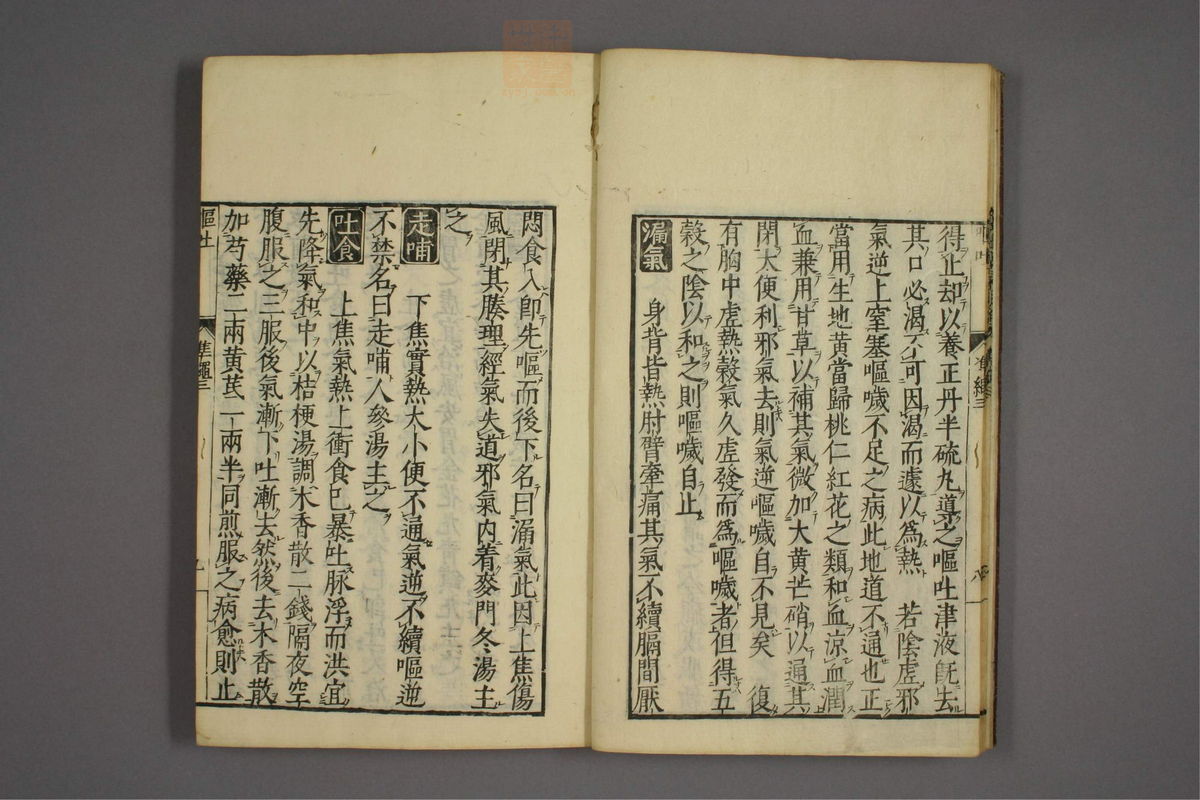 得止却以養正丹半硫丸導之嘔吐津液旣去
其口必渴不可因渴而遽以爲熱　若陰虛邪
氣逆上窒塞嘔噦不足之病此地道不通也正
當用生地黄當歸桃仁紅花之類和血凉血潤
血兼用甘草以補其氣微加大黄芒硝以通其
閉大便利邪氣去則氣逆嘔噦自不見矣　復
有胸中虛熱穀氣久虛發而爲嘔噦者但得五
穀之陰以和之則嘔噦自止
漏氣　身背皆熱肘臂牽痛其氣不續膈間厭
悶食入卽先嘔而後下名曰漏氣此因上焦傷
風閉其腠理經氣失道邪氣内着麥門冬湯主
之
走哺　下焦實熱大小便不通氣逆不續嘔逆
不禁名曰走哺人參湯主之
吐食　上焦氣熱上衝食已暴吐脉浮而洪宜
先降氣和中以桔梗湯調木香散二錢隔夜空
腹服之三服後氣漸下吐漸去然後去木香散
加芍藥二兩黄芪一兩半同煎服之病愈則止
嘔吐　準繩三　九